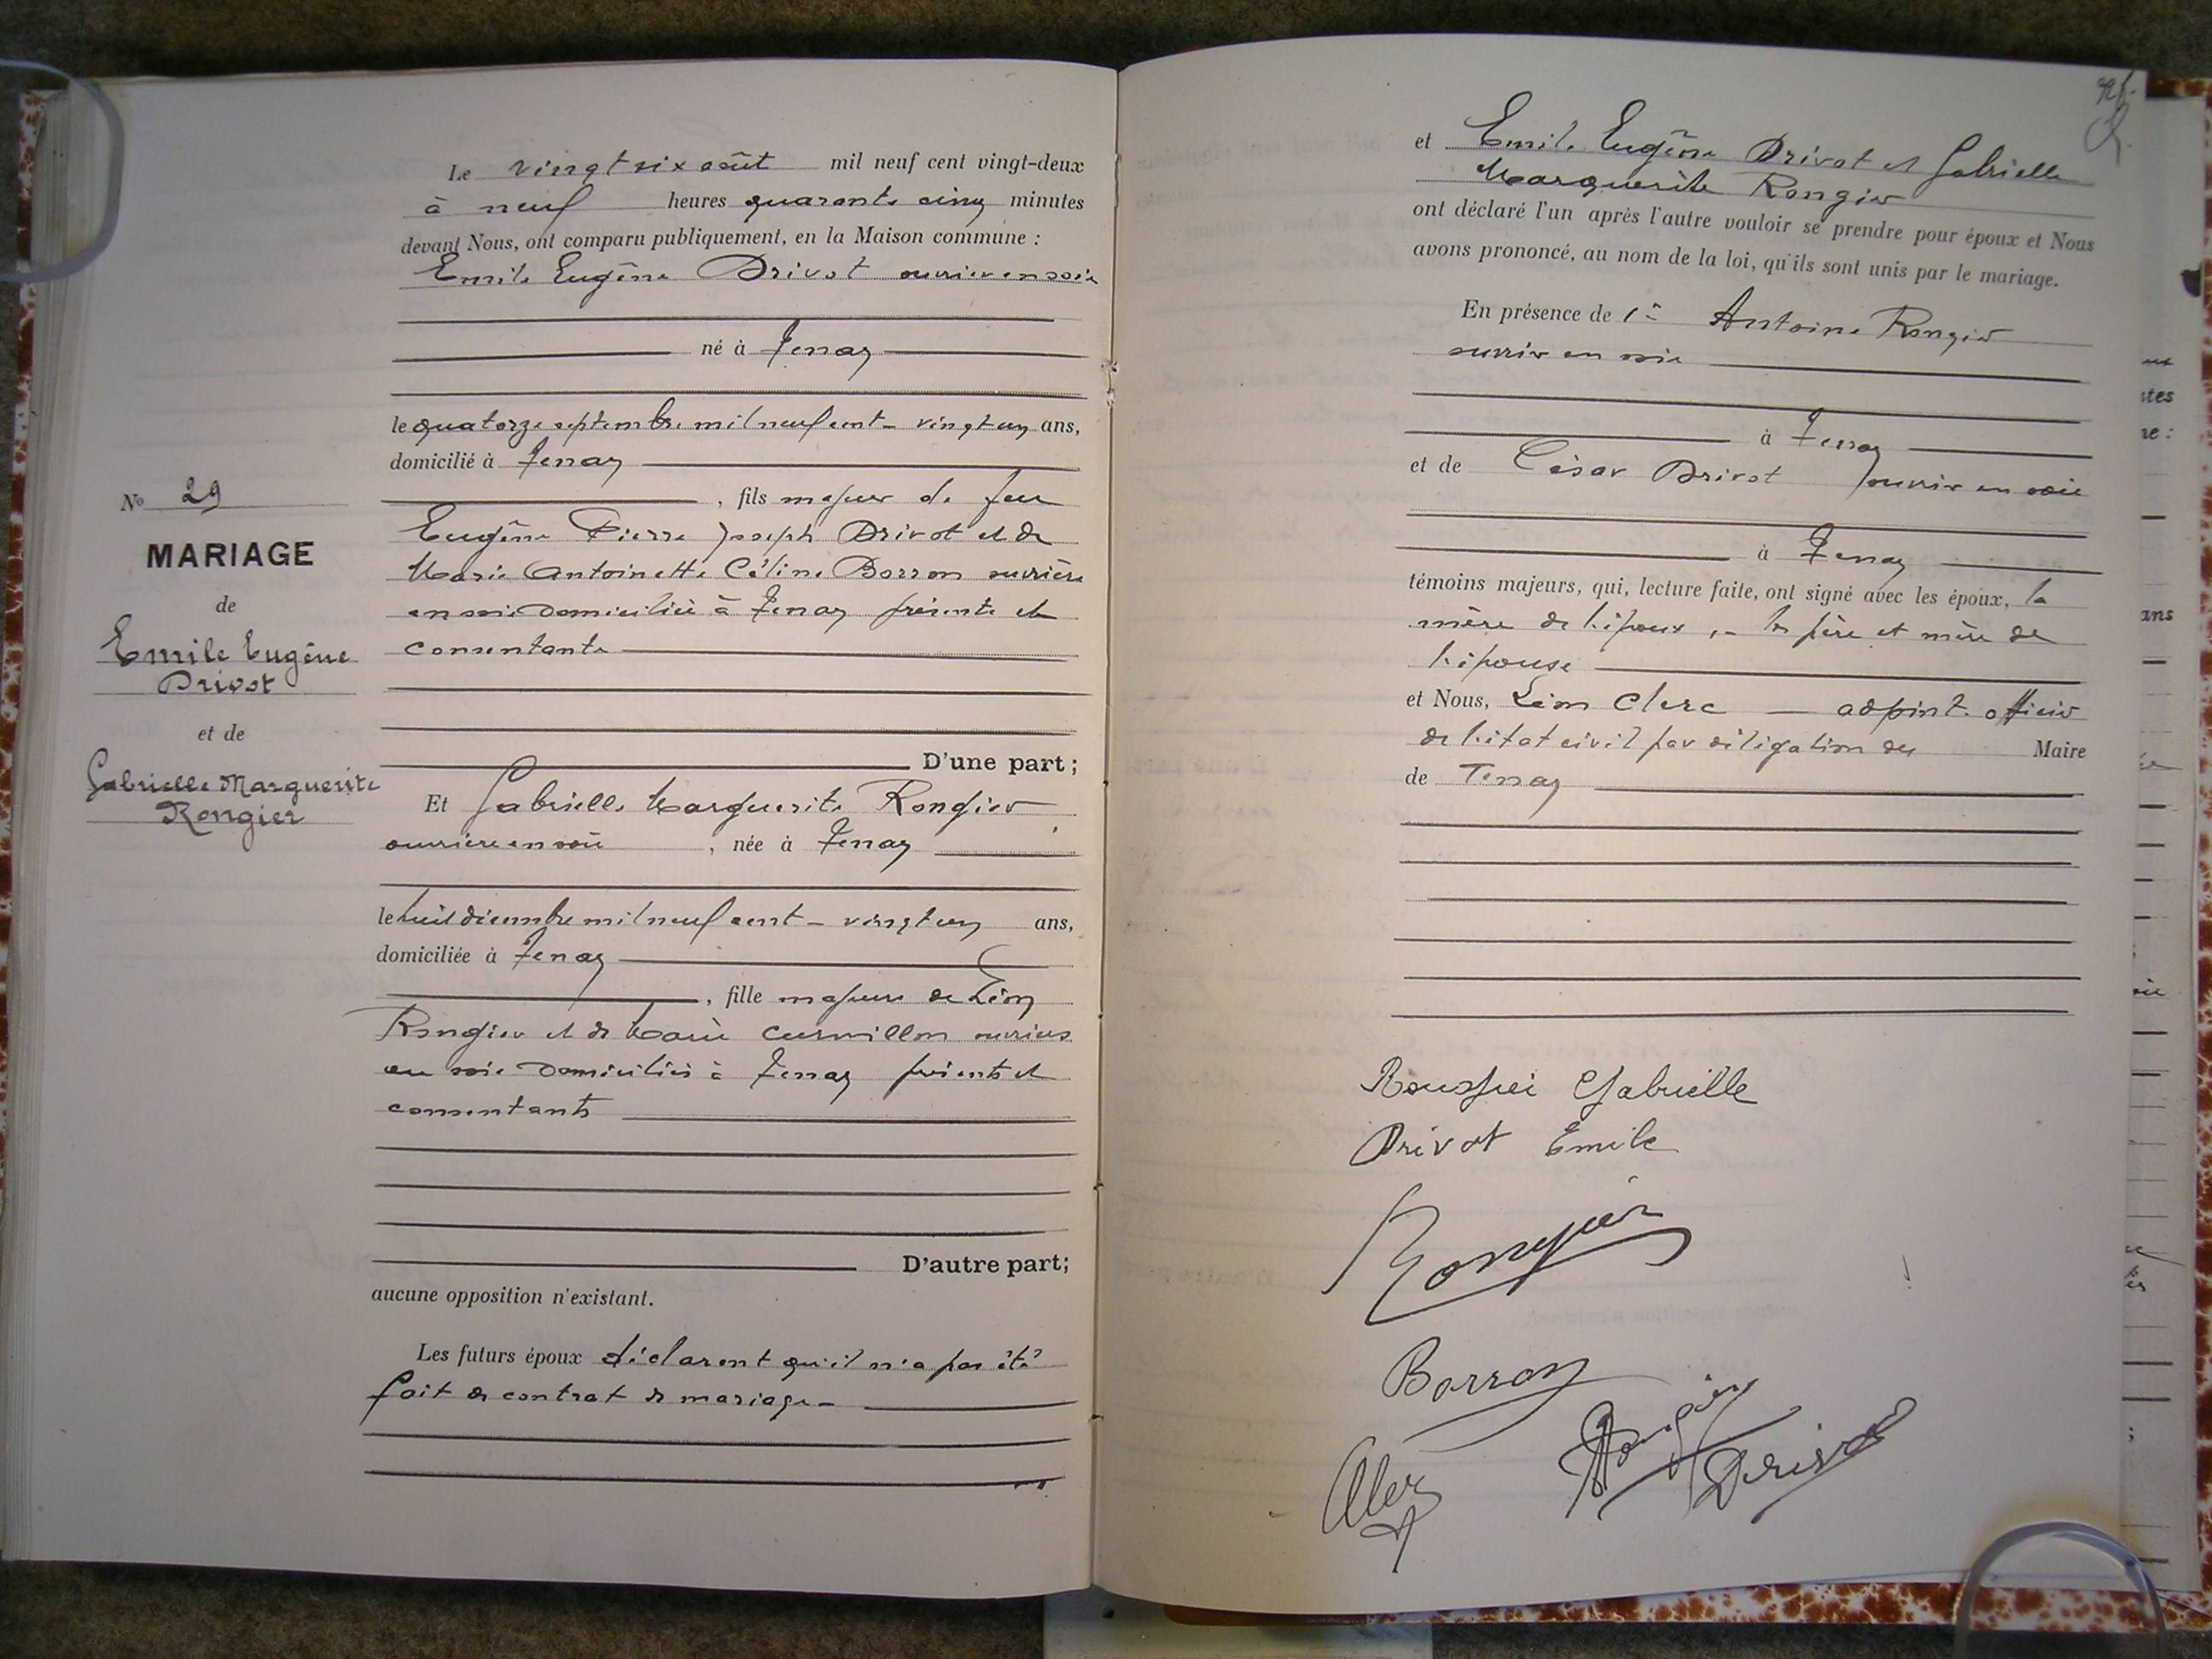 Le vingt six août mil neuf cent vingt-deux
à neuf heures quarante cinq minutes
devant Nous, ont comparu publiquement, en la Maison commune :
Emile Eugène Drivot ouvrier en soie
né à Tenay
le quatorze septembre mil neuf cent - vingt un ans,
domicilié à Tenay
, fils majeur de feu
Eugène Pierre Joseph Drivot et de
Marie Antoinette Céline Borron ouvrière
en soie domiciliée à Tenay présente et
consentante
D'une part ;
Et Gabrielle Marguerite Rongier
ouvrière en soie , née à Tenay
le huit décembre mil neuf cent - vingt un ans,
domiciliée à Tenay
, fille majeure de Léon
Rongier et de Marie Curvillon ouvriers
en soie domiciliés à Tenay présents et
consentants
D'autre part ;
aucune opposition n'existant.
Les futurs époux déclarent qu'il n'a pas été
fait de contrat de mariage -
No 29
MARIAGE
de
Emile Eugène
Drivot
et de
Gabrielle Marguerite
Rongier
et Emile Eugène Drivot et Gabrielle
Marguerite Rongier
ont déclaré l'un après l'autre vouloir se prendre pour époux et Nous
avons prononcé, au nom de la loi, qu'ils sont unis par le mariage.
En présence de Antoine Rongier
ouvrier en soie
à Tenay
et de César Drivot ouvrier en soie
à Tenay
témoins majeurs, qui, lecture faite, ont signé avec les époux, la
mère de l'époux, - les père et mère de
l'épouse
et Nous, Léon Clerc — adjoint officier
de l'état civil par délégation du Maire
de Tenay
Gabrielle
Drivot Emile
Rongier
Borron
Rongier
Drivot